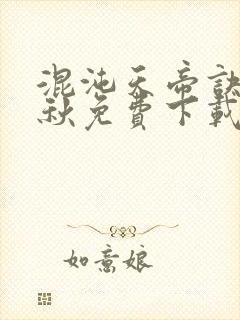 混沌天帝訣
秋免費下載
如意娘